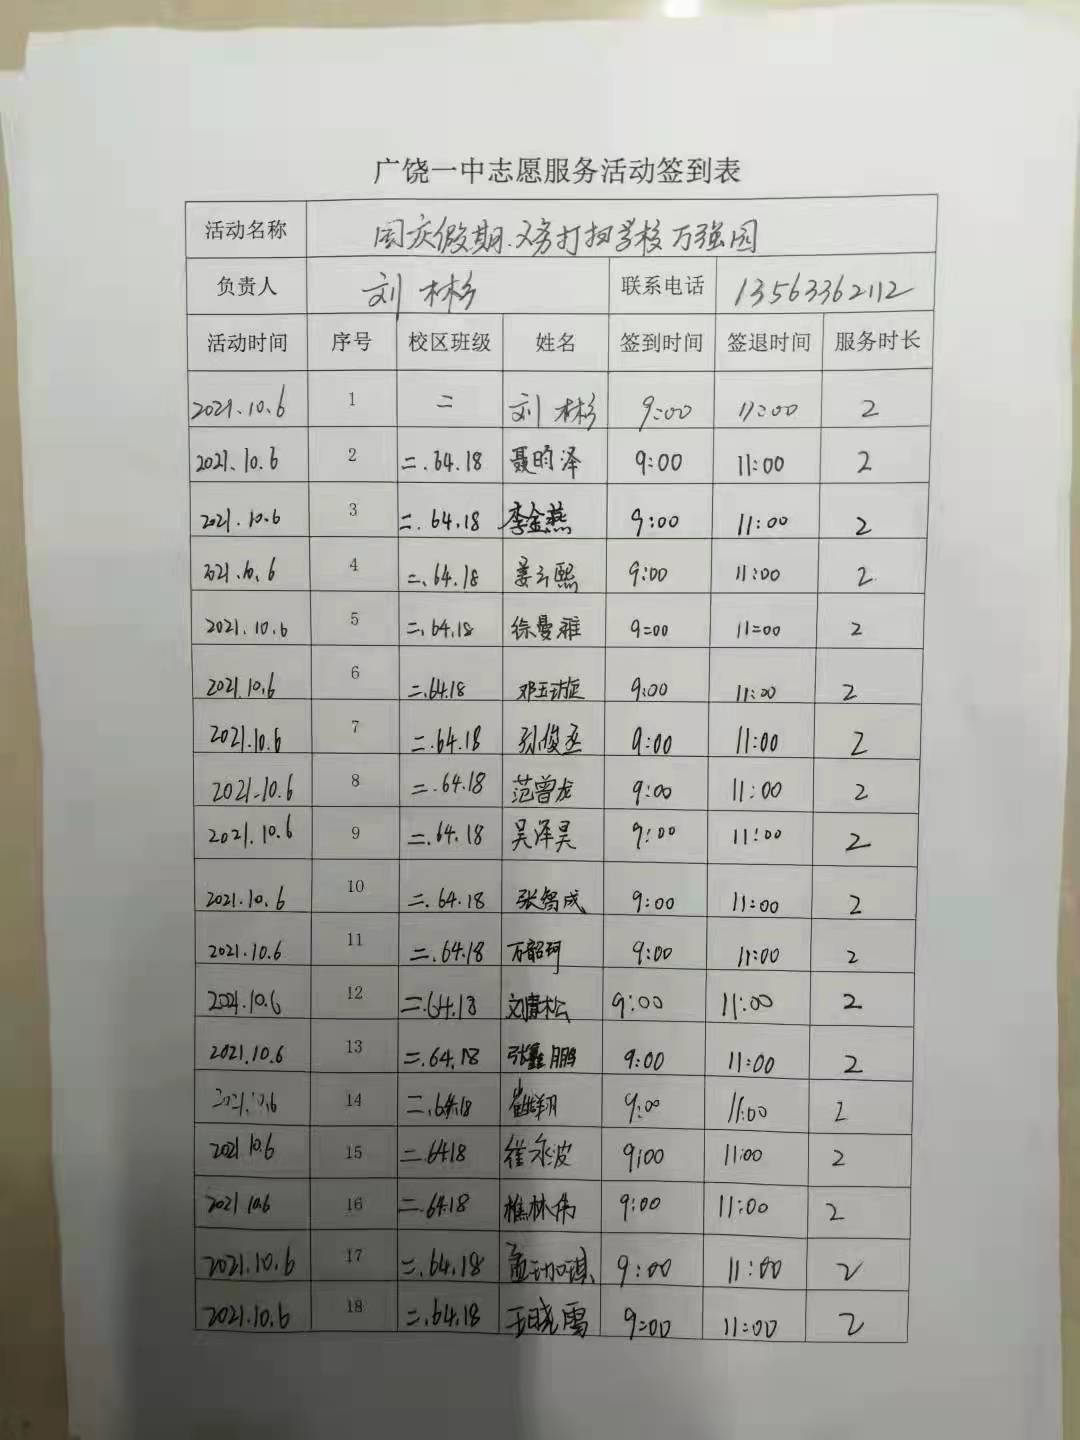 广饶一中志愿服务活动签到表
活动名称 国庆假期.义务打扫学校万强园
负责人 刘彬彬 联系电话 13563362112
活动时间 序号 校区班级 姓名 签到时间 签退时间 服务时长
2021.10.6 1 二 刘彬彬 9:00 11:00 2
2021.10.6 2 二.64.18 聂昀泽 9:00 11:00 2
2021.10.6 3 二.64.18 李金燕 9:00 11:00 2
2021.10.6 4 二.64.18 姜云熙 9:00 11:00 2
2021.10.6 5 二.64.18 徐曼雅 9:00 11:00 2
2021.10.6 6 二.64.18 邓玉璇 9:00 11:00 2
2021.10.6 7 二.64.18 孙俊丞 9:00 11:00 2
2021.10.6 8 二.64.18 范曾龙 9:00 11:00 2
2021.10.6 9 二.64.18 吴泽昊 9:00 11:00 2
2021.10.6 10 二.64.18 张智成 9:00 11:00 2
2021.10.6 11 二.64.18 万韶珂 9:00 11:00 2
2021.10.6 12 二.64.18 9:00 11:00 2
2021.10.6 13 二.64.18 张鑫鹏 9:00 11:00 2
2021.10.6 14 二.64.18 9:00 11:00 2
2021 10.6 15 二.6418 崔永波 9:00 11:00 2
2021 10.6 16 二.64.18 樵林伟 9:00 11:00 2
2021.10.6 17 二.64.18 9:00 11:00 2
2021.10.6 18 二.64.18 王晓雪 9:00 11:00 2